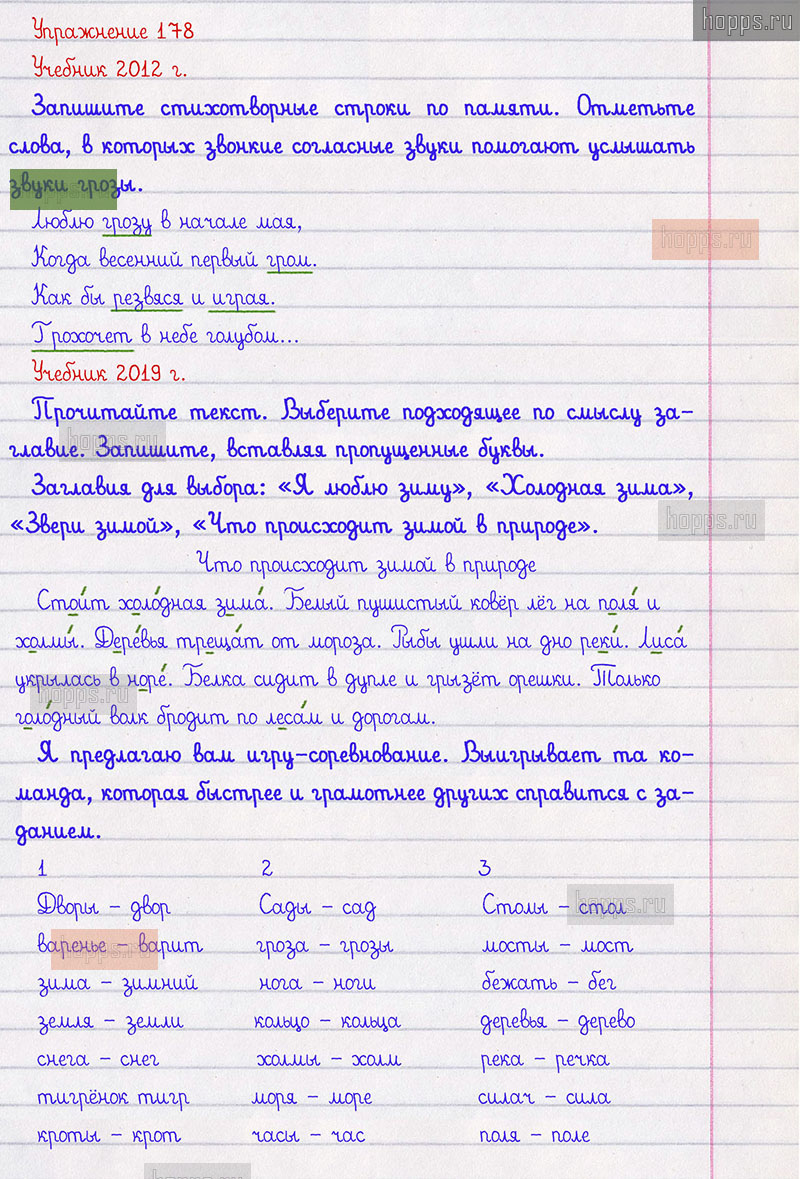 hopps.ru
Упражнение 178
Учебник 2012 г.
Запишите стихотворные строки по памяти. Отметьте
слова, в которых звонкие согласные звуки помогают услышать
звуки грозы.
Люблю грозу в начале мая,
hopps.ru
Когда весенний первый гром.
Как бы резвяся и играя.
Грохочет в небе голубом...
Учебник 2019 г.
Прочитайте текст. Выберите подходящее по смыслу за-
hopps.ru
главие. Запишите, вставляя пропущенные буквы.
Заглавия для выбора: «Я люблю зиму», «Холодная зима»,
«Звери зимой», «Что происходит зимой в природе».
hopps.ru
Что происходит зимой в природе
Стои́т холо́дная зима́. Белый пушистый ковёр лёг на поля́ и
холмы́. Дере́вья треща́т от мороза. Рыбы ушли на дно реки́. Лиса́
укрылась в норе́. Белка сидит в дупле и грызёт орешки. Только
hopps.ru
голо́дный волк бродит по леса́м и дорогам.
Я предлагаю вам игру-соревнование. Выигрывает та ко-
манда, которая быстрее и грамотнее других справится с за-
данием.
1 2 3
Дворы – двор Сады – сад Столы – стол
hopps.ru
варенье – варит гроза – грозы мосты – мост
hopps.ru
зима – зимний нога – ноги бежать – бег
земля – земли кольцо – кольца деревья – дерево
снега – снег холмы – холм река – речка
тигрёнок тигр моря – море силач – сила
кроты – крот часы – час поля – поле
hopps.ru